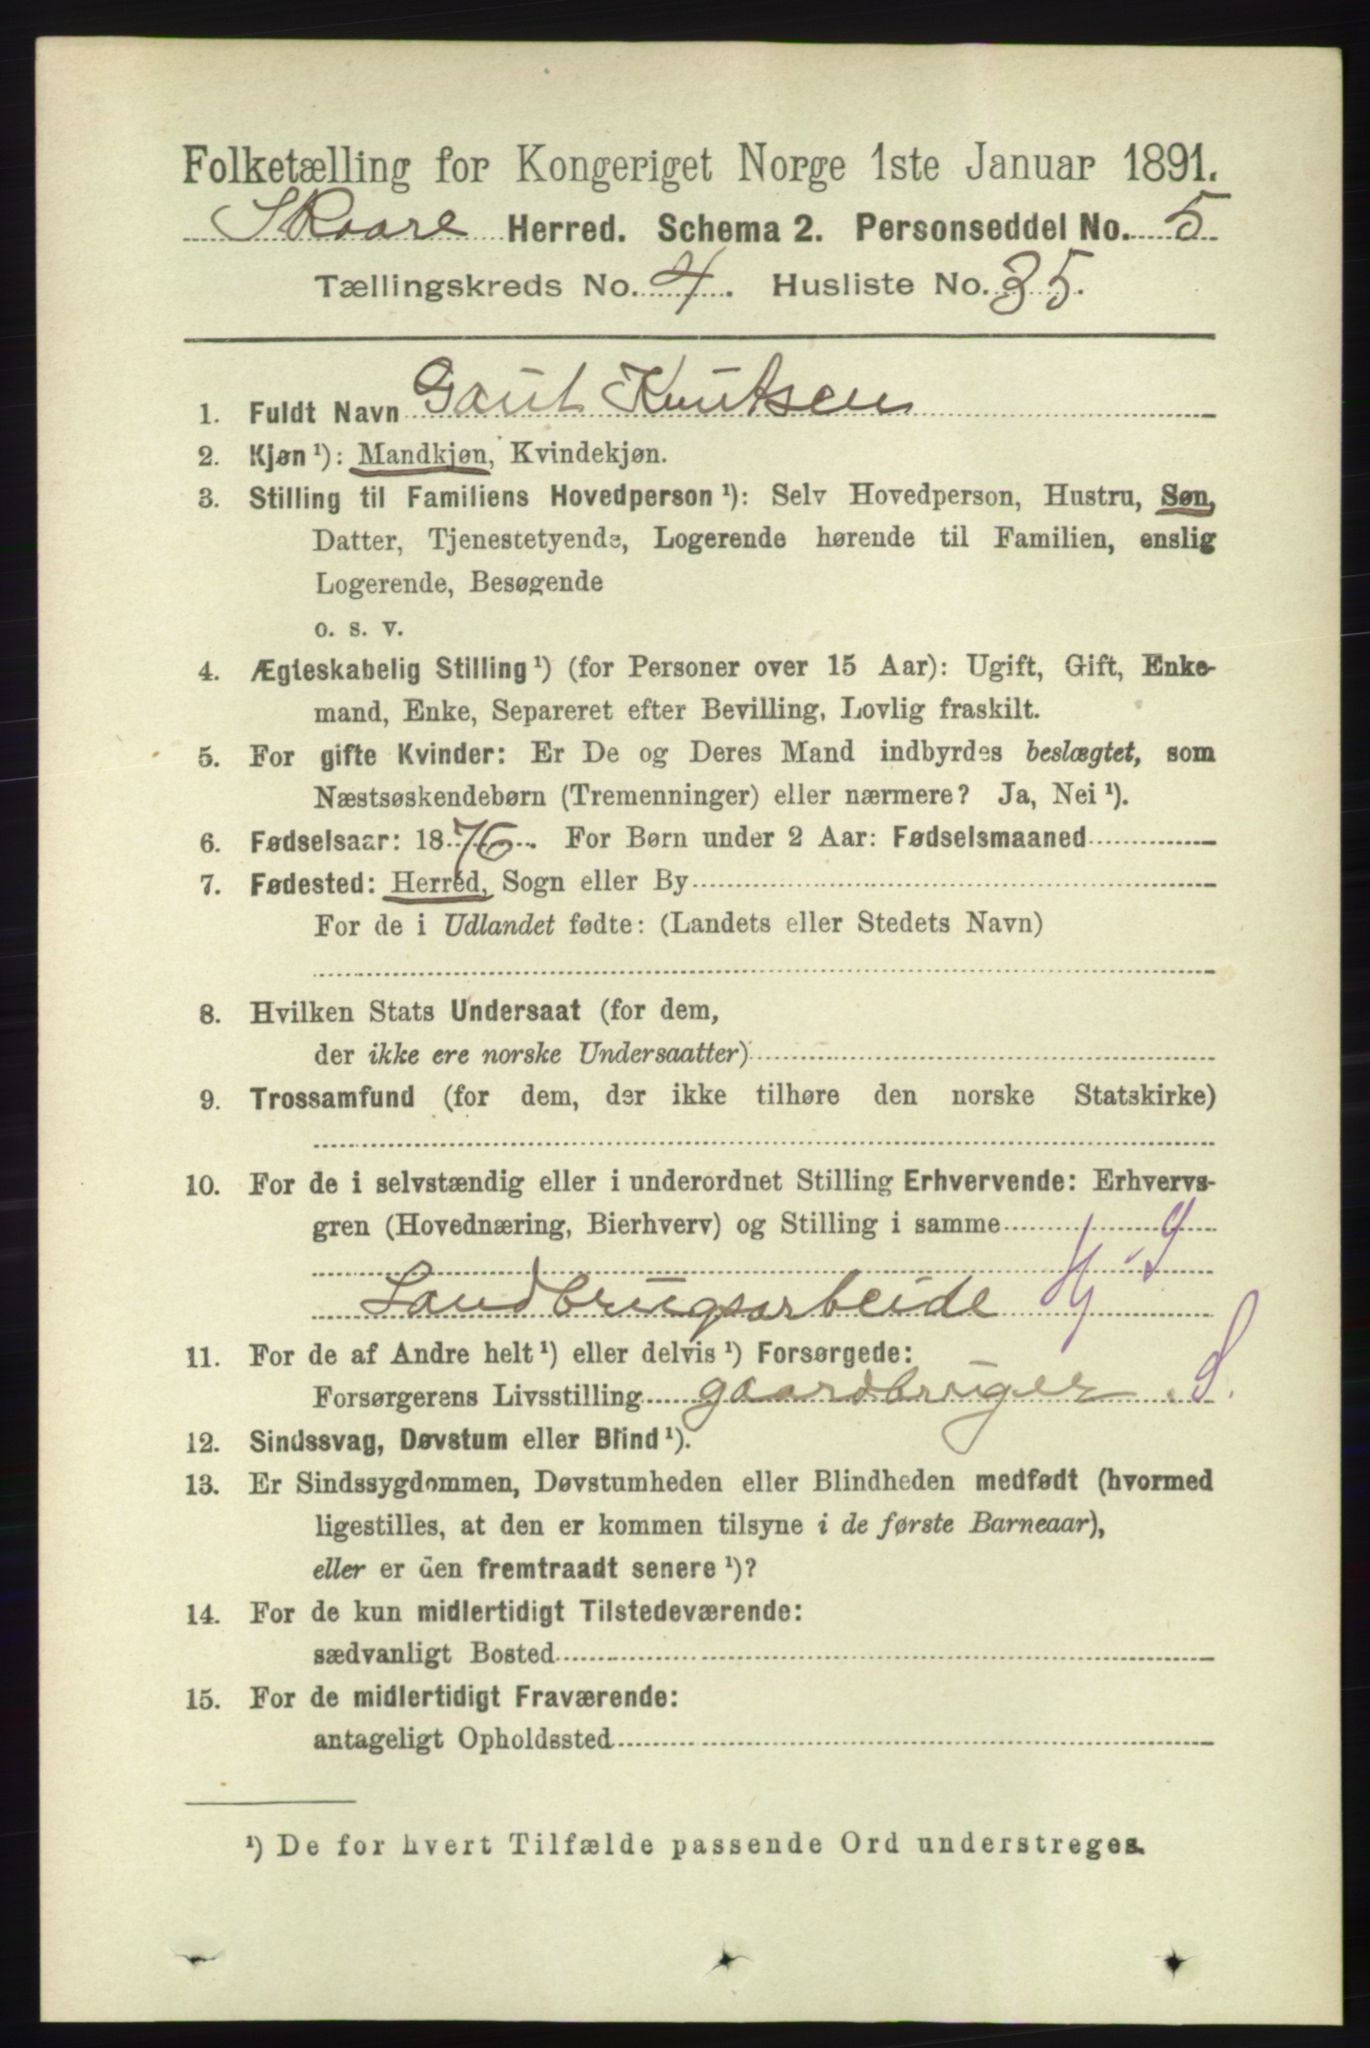 Folketælling for Kongeriget Norge 1ste Januar 1891.
Skaare Herred. Schema 2. Personseddel No. 5
Tællingskreds No. 4. Husliste No. 35.
1. Fuldt Navn Gaut Knutsen
2. Kjøn¹): Mandkjøn, Kvindekjøn.
3. Stilling til Familiens Hovedperson¹): Selv Hovedperson, Hustru, Søn,
Datter, Tjenestetyende, Logerende hørende til Familien, enslig
Logerende, Besøgende
o. s. v.
4. Ægteskabelig Stilling¹) (for Personer over 15 Aar): Ugift, Gift, Enke-
mand, Enke, Separeret efter Bevilling, Lovlig fraskilt.
5. For gifte Kvinder: Er De og Deres Mand indbyrdes beslægtet, som
Næstsøskendebørn (Tremenninger) eller nærmere? Ja, Nei¹).
6. Fødselsaar: 1876. For Børn under 2 Aar: Fødselsmaaned
7. Fødested: Herred, Sogn eller By
For de i Udlandet fødte: (Landets eller Stedets Navn)
8. Hvilken Stats Undersaat (for dem,
der ikke ere norske Undersaatter)
9. Trossamfund (for dem, der ikke tilhøre den norske Statskirke)
10. For de i selvstændig eller i underordnet Stilling Erhvervende: Erhvervs-
gren (Hovednæring, Bierhverv) og Stilling i samme
Landbrugsarbeide
11. For de af Andre helt¹) eller delvis¹) Forsørgede:
Forsørgerens Livsstilling gaardbruger. S.
12. Sindssvag, Døvstum eller Blind¹).
13. Er Sindssygdommen, Døvstumheden eller Blindheden medfødt (hvormed
ligestilles, at den er kommen tilsyne i de første Barneaar),
eller er den fremtraadt senere¹)?
14. For de kun midlertidigt Tilstedeværende:
sædvanligt Bosted
15. For de midlertidigt Fraværende:
antageligt Opholdssted
¹) De for hvert Tilfælde passende Ord understreges.